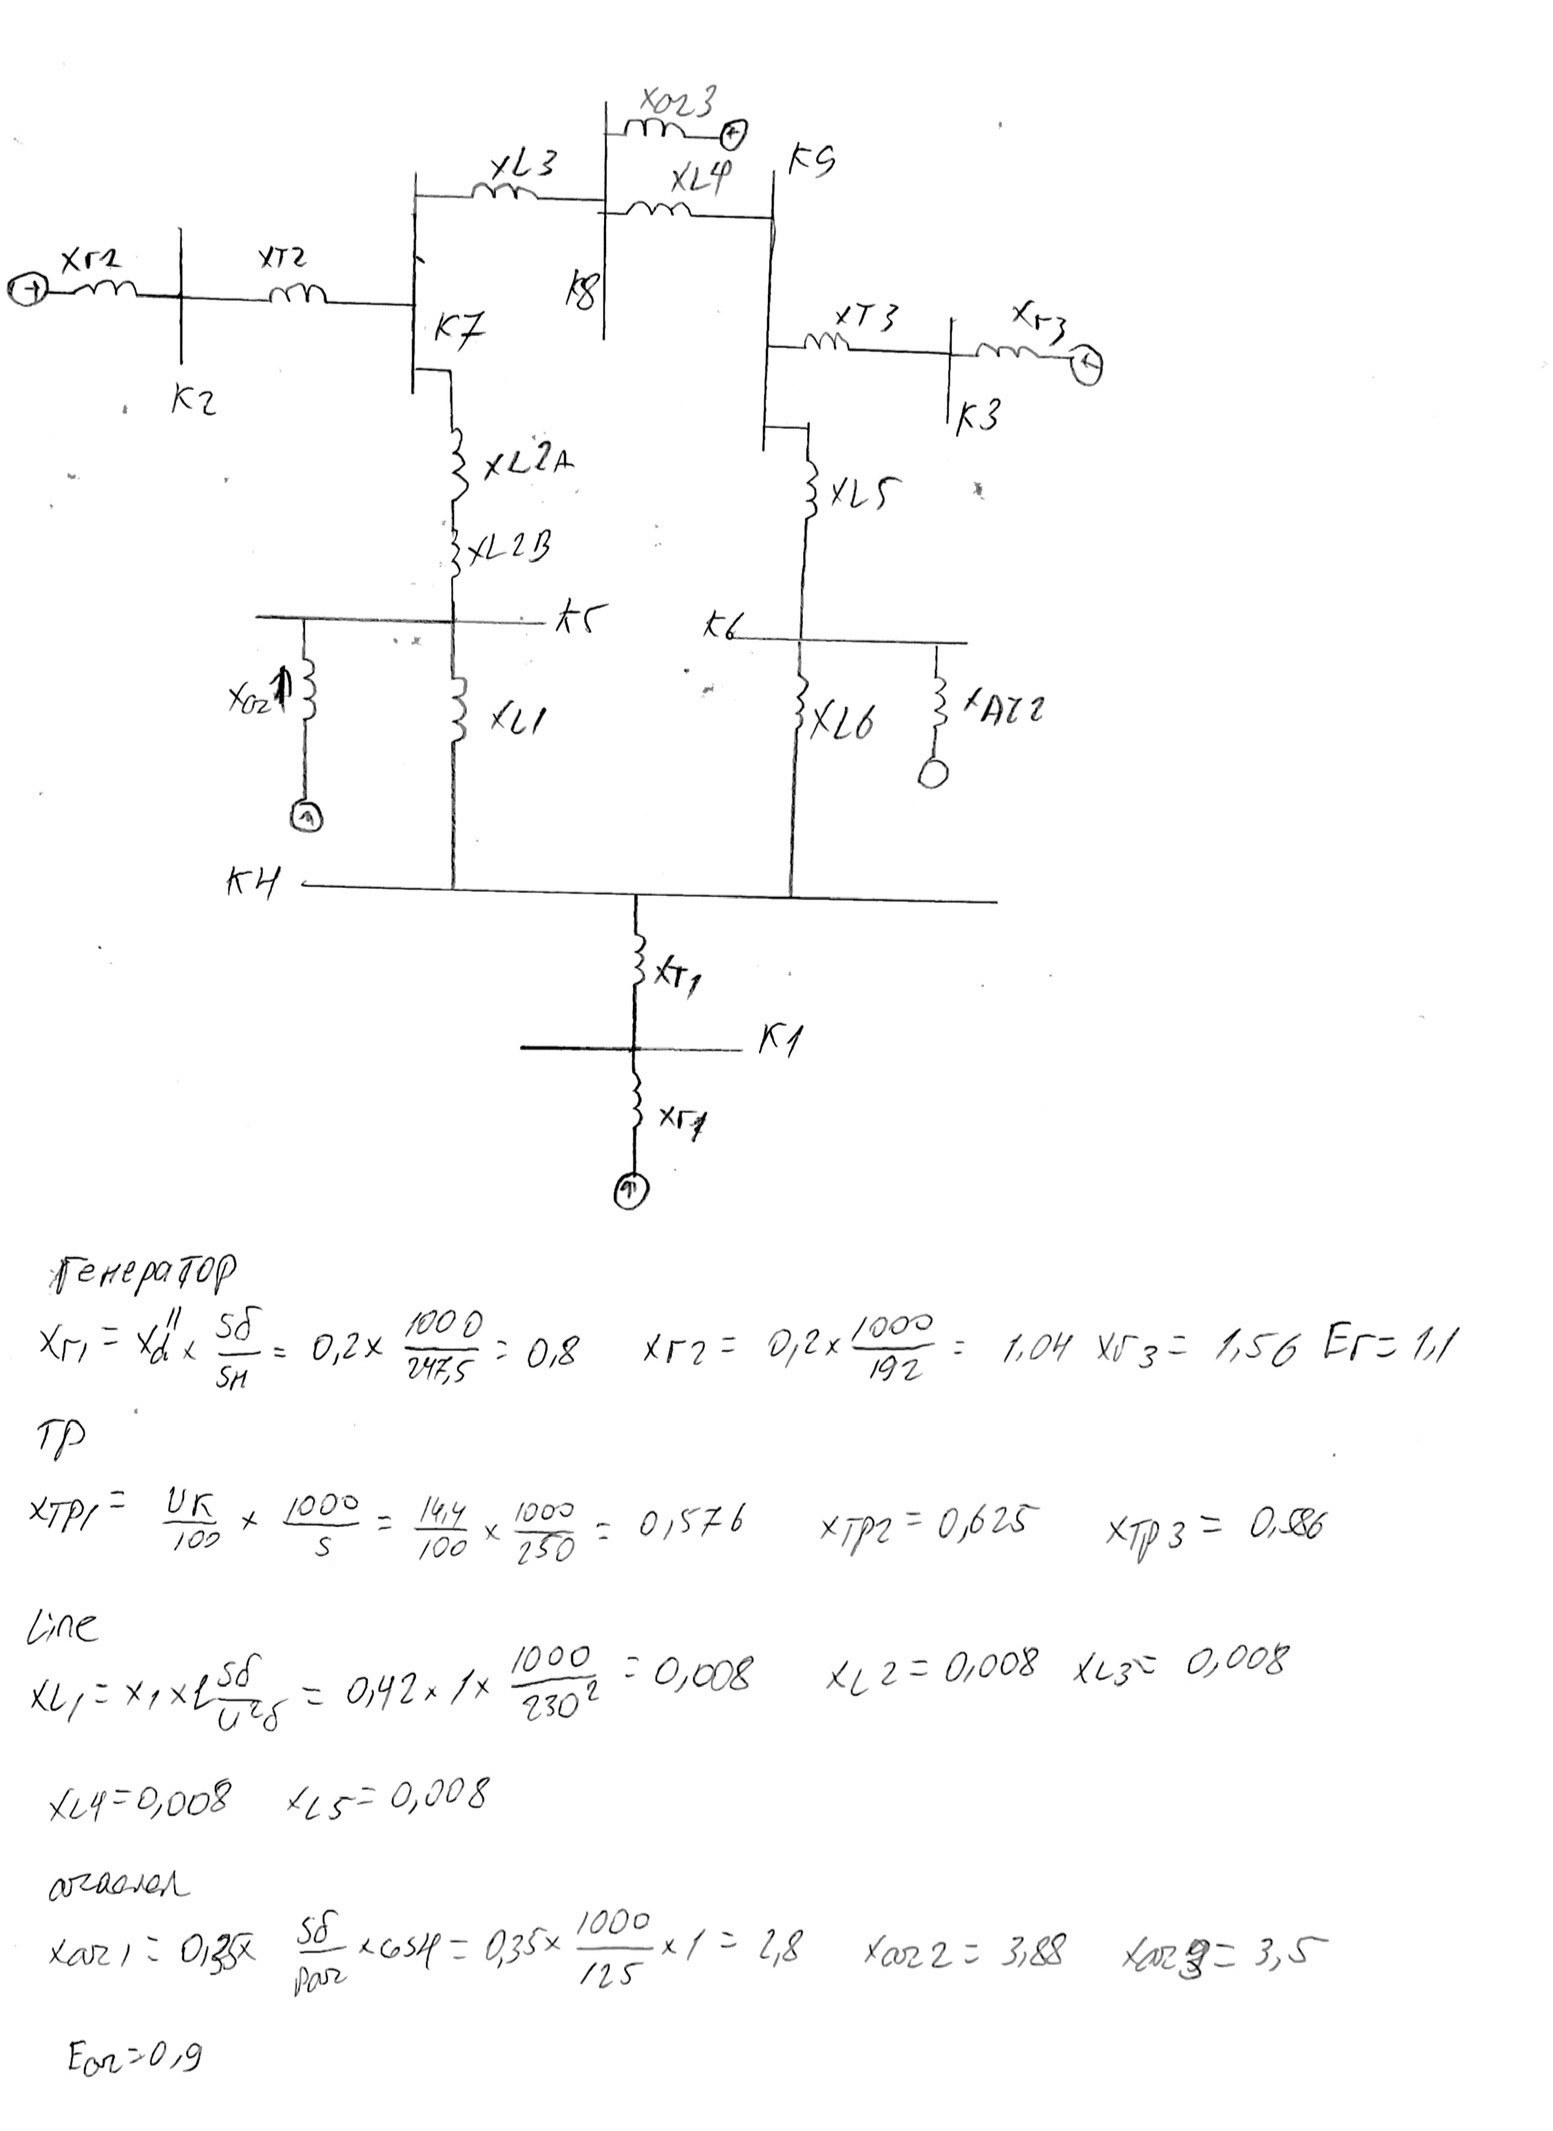 Xаг3
XL3
XL4
K9
XГ2
XT2
K8
XT3
XГ3
K7
K2
K3
XL2A
XL5
XL2B
K5
K6
Xаг1
XL1
XL6
XАГ2
K4
XT1
K1
XГ1
Генератор
XГ1 = Xd'' × Sб/Sн = 0,2 × 1000/247,5 = 0,8 XГ2 = 0,2 × 1000/192 = 1,04 XГ3 = 1,56 EГ = 1,1
ТР
XТР1 = UK/100 × 1000/S = 14,4/100 × 1000/250 = 0,576 XТР2 = 0,625 XТР3 = 0,586
Line
XL1 = X1 × l Sб/U²б = 0,42 × 1 × 1000/230² = 0,008 XL2 = 0,008 XL3 = 0,008
XL4 = 0,008 XL5 = 0,008
Xаг1 = 0,35 × Sб/Pаг × cosφ = 0,35 × 1000/125 × 1 = 2,8 Xаг2 = 3,88 Xаг3 = 3,5
Eаг = 0,9